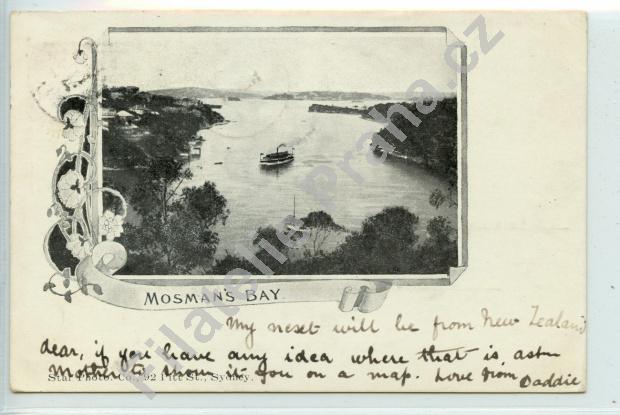 MOSMAN'S BAY
My nesct will be from New Zealand
dear, if you have any idea where that is, ask
Mother to show it you on a map. Love from Daddie
Star Photo. Co., 92 Pitt St., Sydney.
Filatelie Praha.cz